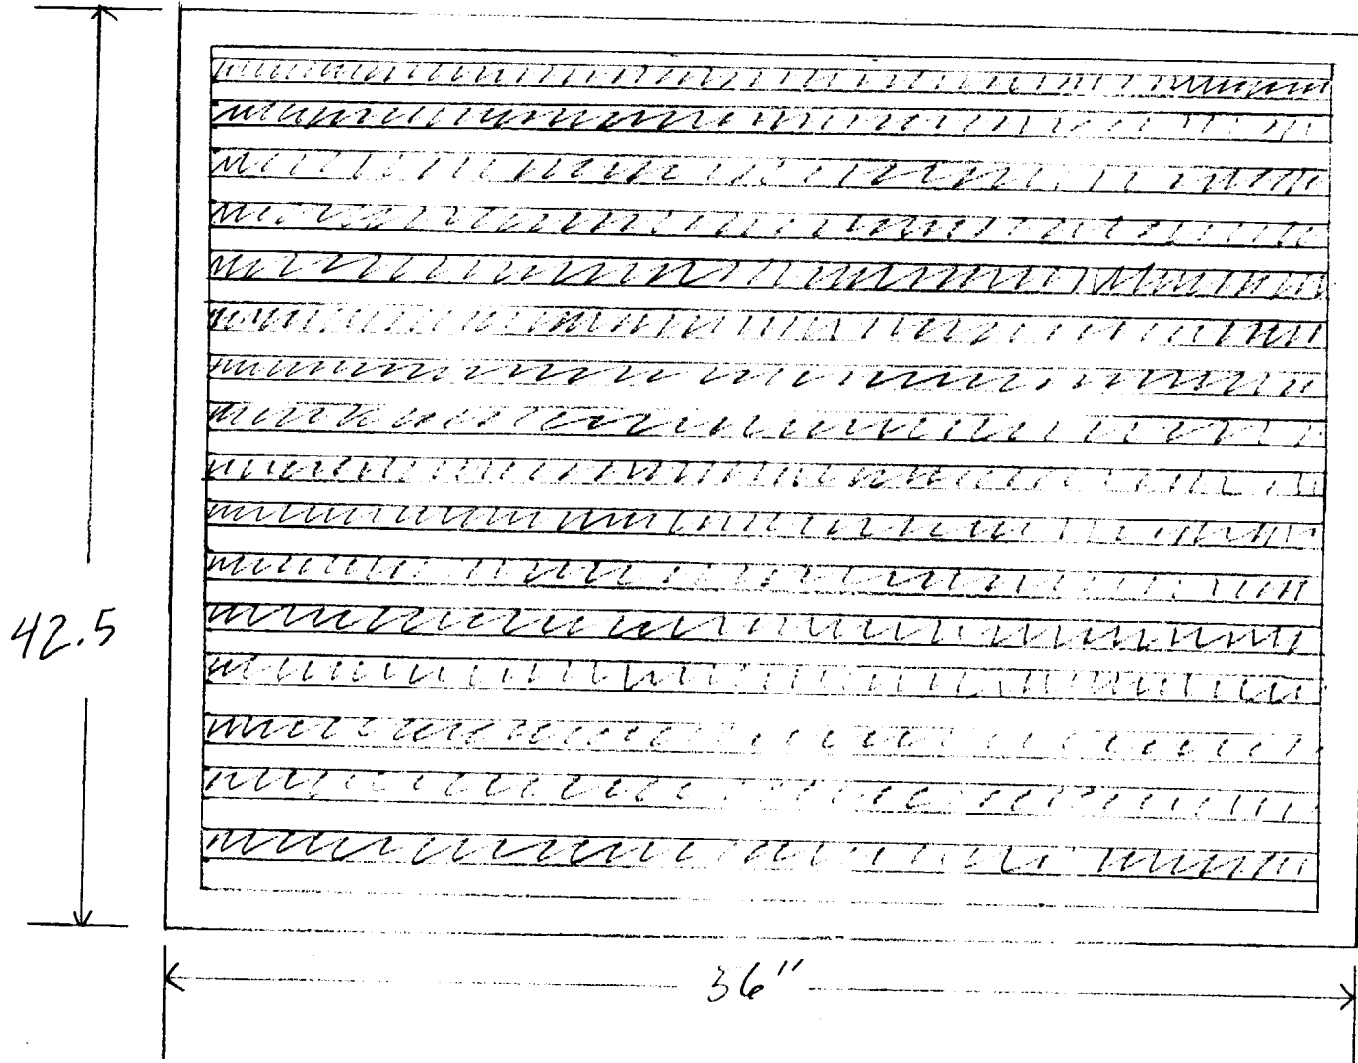 42.5
36"